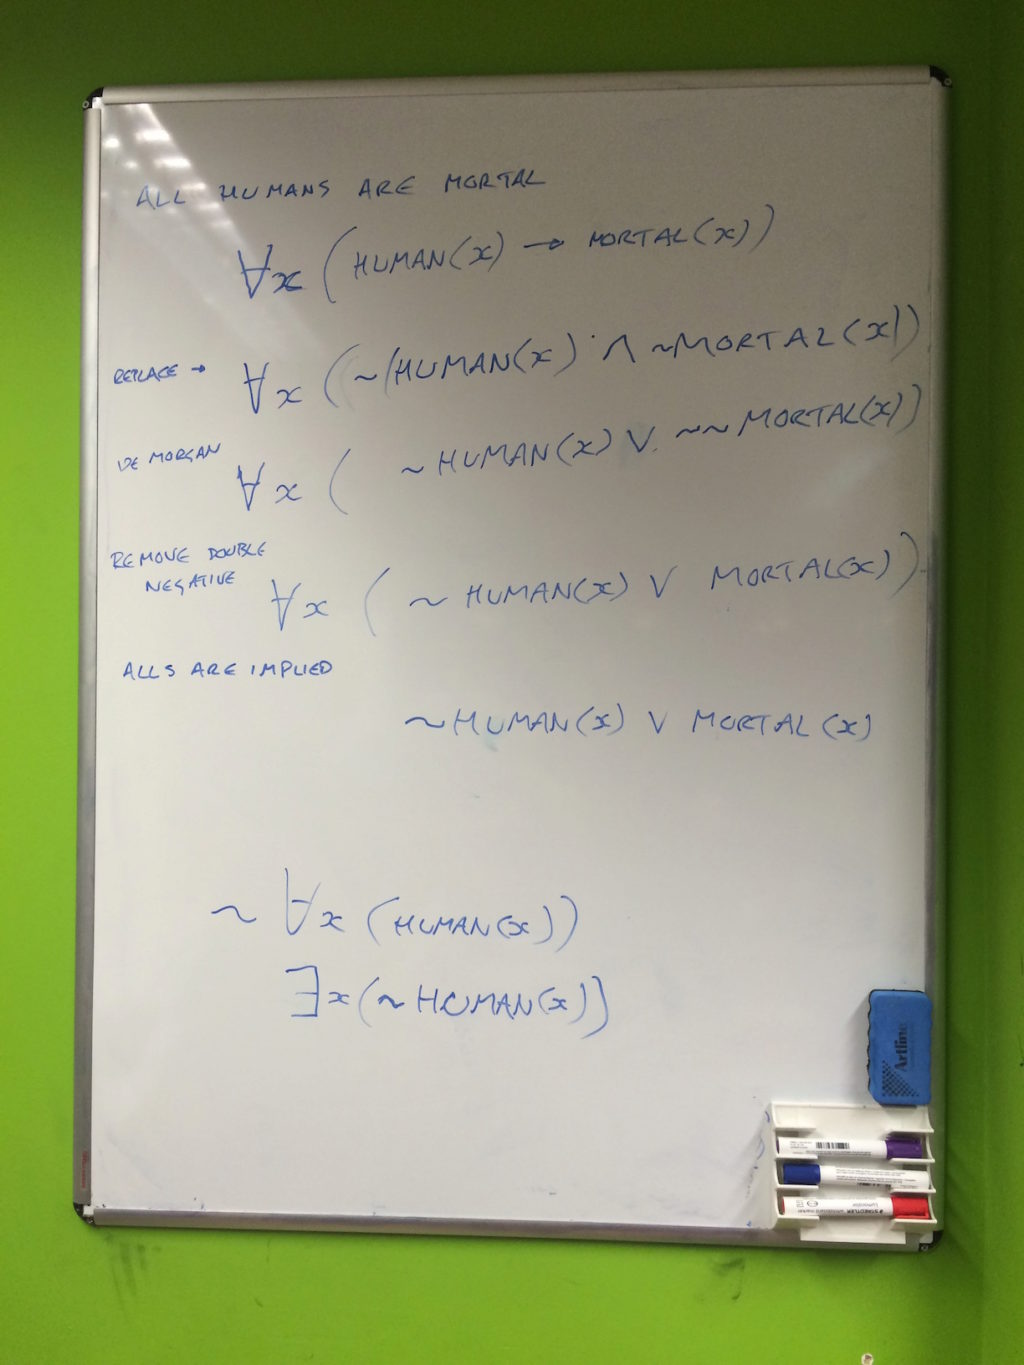 ALL HUMANS ARE MORTAL
∀x (HUMAN(x) → MORTAL(x))
REPLACE → ∀x (~(HUMAN(x) ∧ ~MORTAL(x)))
DE MORGAN ∀x ( ~HUMAN(x) ∨ ~~MORTAL(x))
REMOVE DOUBLE
NEGATIVE ∀x ( ~ HUMAN(x) ∨ MORTAL(x))
ALLS ARE IMPLIED
~HUMAN(x) ∨ MORTAL(x)
~ ∀x (HUMAN(x))
∃x(~HUMAN(x))
Artline
STAEDTLER